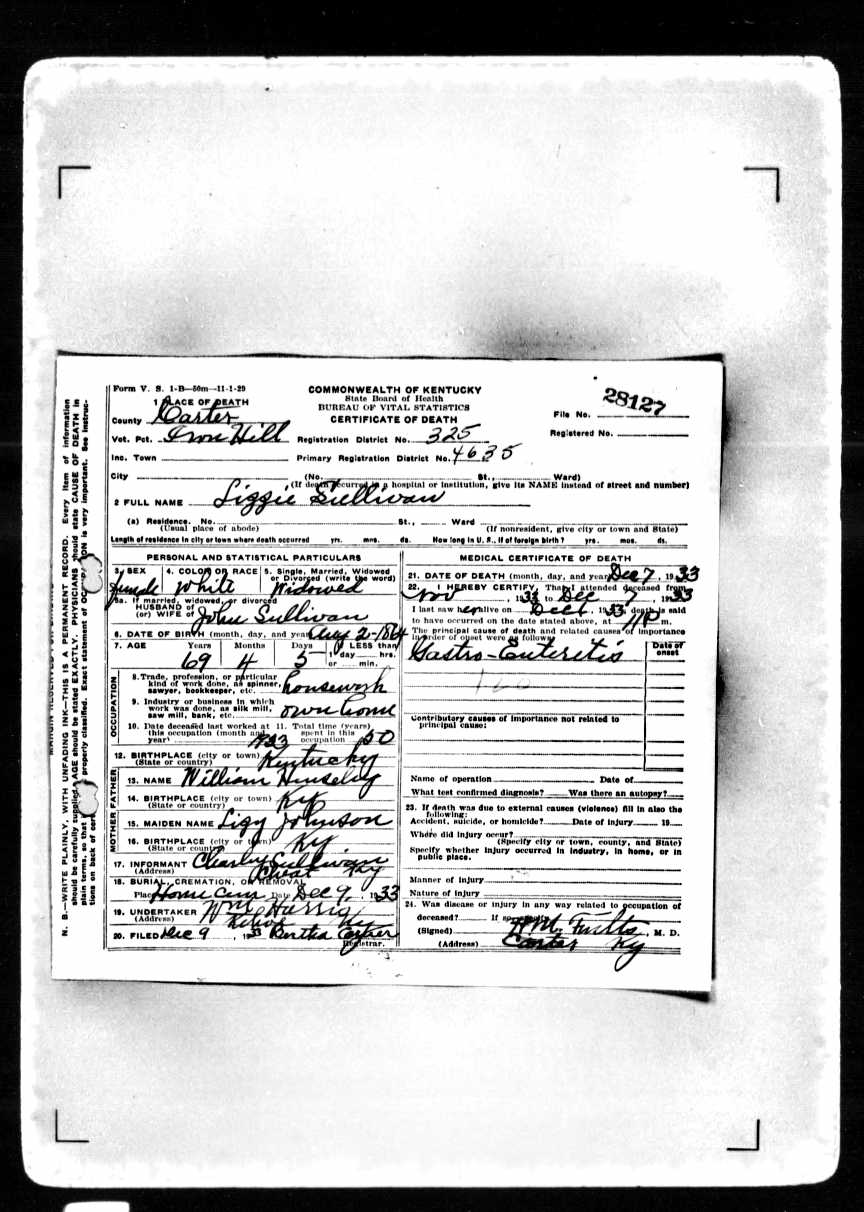 Form V. S. 1-B—50m—11-1-29
COMMONWEALTH OF KENTUCKY
State Board of Health
BUREAU OF VITAL STATISTICS
CERTIFICATE OF DEATH
File No. 28127
Registered No.
1 PLACE OF DEATH
County Carter
Vot. Pct. Iron Hill Registration District No. 325
Inc. Town Primary Registration District No. 4635
City (No. St., Ward)
(If death occurred in a hospital or institution, give its NAME instead of street and number)
2 FULL NAME Lizzie Sullivan
(a) Residence. No. St., Ward
(Usual place of abode) (If nonresident, give city or town and State)
Length of residence in city or town where death occurred yrs. mos. ds. How long in U. S., if of foreign birth? yrs. mos. ds.
PERSONAL AND STATISTICAL PARTICULARS
3. SEX 4. COLOR OR RACE 5. Single, Married, Widowed
or Divorced (write the word)
female White Widowed
5a. If married, widowed, or divorced
HUSBAND of
(or) WIFE of John Sullivan
6. DATE OF BIRTH (month, day, and year) Aug 2-1864
7. AGE Years Months Days If LESS than
1 day hrs.
or min.
69 4 5
OCCUPATION
8. Trade, profession, or particular
kind of work done, as spinner,
sawyer, bookkeeper, etc. housework
9. Industry or business in which
work was done, as silk mill,
saw mill, bank, etc. own home
10. Date deceased last worked at 11. Total time (years)
this occupation (month and spent in this
year) 1933 occupation 50
12. BIRTHPLACE (city or town) Kentucky
(State or country)
FATHER
13. NAME William
14. BIRTHPLACE (city or town) Ky
(State or country)
MOTHER
15. MAIDEN NAME Lizy Johnson
16. BIRTHPLACE (city or town) Ky
(State or country)
17. INFORMANT Charley Sullivan
(Address) Ky
18. BURIAL, CREMATION, OR REMOVAL
Place Home Cem Date Dec 9, 1933
19. UNDERTAKER Wm
(Address) Ky
20. FILED Dec 9, 1933 Bertha
Registrar.
MEDICAL CERTIFICATE OF DEATH
21. DATE OF DEATH (month, day, and year) Dec 7, 1933
22. I HEREBY CERTIFY, That I attended deceased from
Nov, 1933 to Dec 7, 1933
I last saw her alive on Dec 6, 1933 death is said
to have occurred on the date stated above, at 11P m.
The principal cause of death and related causes of importance
in order of onset were as follows:
Date of
onset
Gastro-Enteretis
120
Contributory causes of importance not related to
principal cause:
Name of operation Date of
What test confirmed diagnosis? Was there an autopsy?
23. If death was due to external causes (violence) fill in also the
following:
Accident, suicide, or homicide? Date of injury 19
Where did injury occur?
(Specify city or town, county, and State)
Specify whether injury occurred in industry, in home, or in
public place.
Manner of injury
Nature of injury
24. Was disease or injury in any way related to occupation of
deceased? If so, specify
(Signed) Fults, M. D.
(Address) Carter Ky
N. B.—WRITE PLAINLY, WITH UNFADING INK—THIS IS A PERMANENT RECORD. Every item of information
should be carefully supplied. AGE should be stated EXACTLY. PHYSICIANS should state CAUSE OF DEATH in
plain terms, so that properly classified. Exact statement of is very important. See instruc-
tions on back of